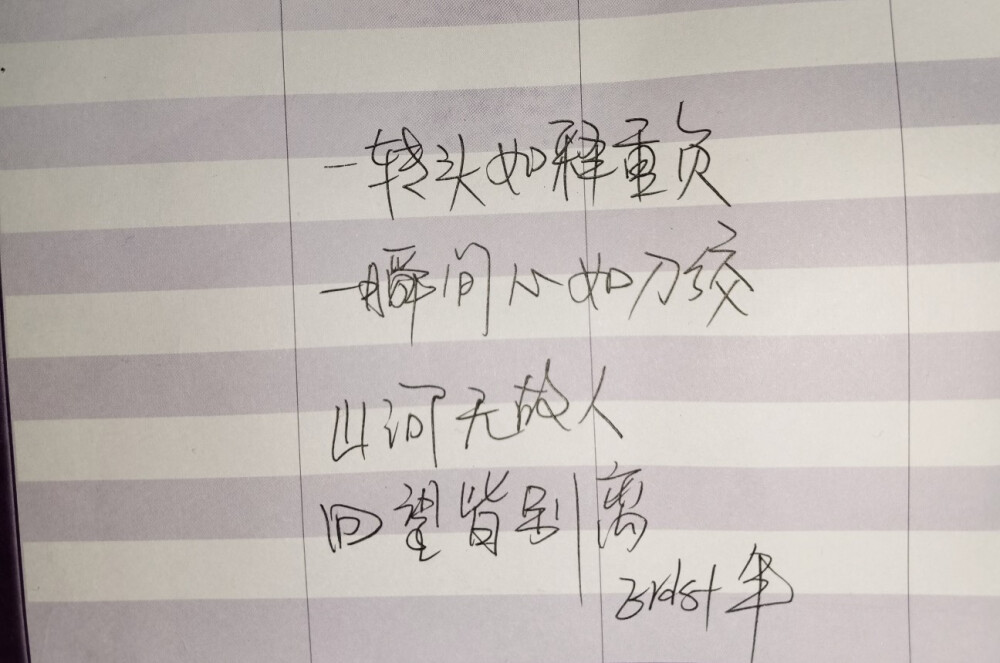 一转头如释重负
一瞬间心如刀绞
山河无故人
回望皆别离
年